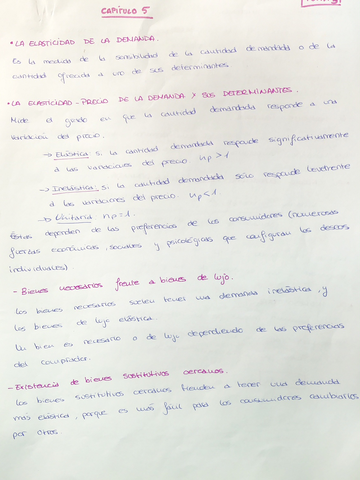 CAPÍTULO 5
• LA ELASTICIDAD DE LA DEMANDA.
Es la medida de la sensibilidad de la cantidad demandada o de la
cantidad ofrecida a uno de sus determinantes.
• LA ELASTICIDAD - PRECIO DE LA DEMANDA Y SUS DETERMINANTES.
Mide el grado en que la cantidad demandada responde a una
variación del precio.
→ Elástica si la cantidad demandada responde significativamente
a las variaciones del precio np > 1
→ Inelástica: si la cantidad demandada sólo responde levemente
a las variaciones del precio np < 1
→ Unitaria np = 1.
Éstas dependen de las preferencias de los consumidores (numerosas
fuerzas económicas, sociales y psicológicas que configuran los deseos
individuales)
- Bienes necesarios frente a bienes de lujo.
Los bienes necesarios suelen tener una demanda inelástica, y
los bienes de lujo elástica.
Un bien es necesario o de lujo dependiendo de las preferencias
del comprador.
- Existencia de bienes sustitutivos cercanos.
Los bienes sustitutivos cercanos tienden a tener una demanda
más elástica, porque es más fácil para los consumidores cambiarlos
por otros.